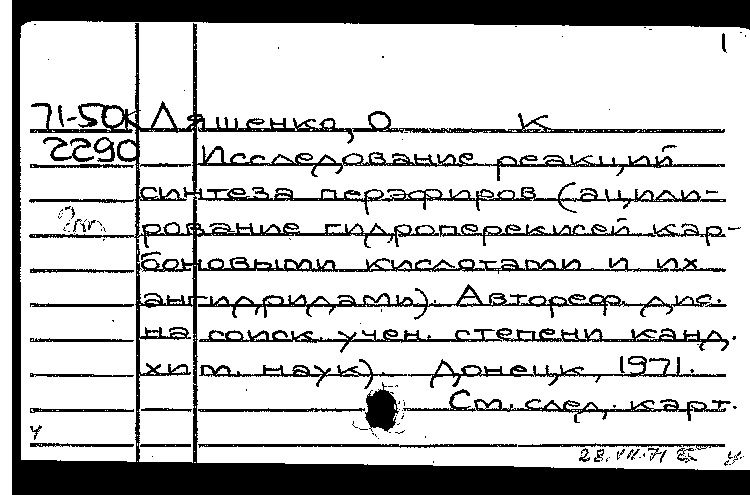 1
71-50К Лященко, О К
2290 Исследование реакций
синтеза перэфиров (ацили-
рование гидроперекисей кар-
боновыми кислотами и их
ангидридами). Автореф. дис.
на соиск. учен. степени канд.
хим. наук). Донецк, 1971.
См. след. карт.
28.VII.71